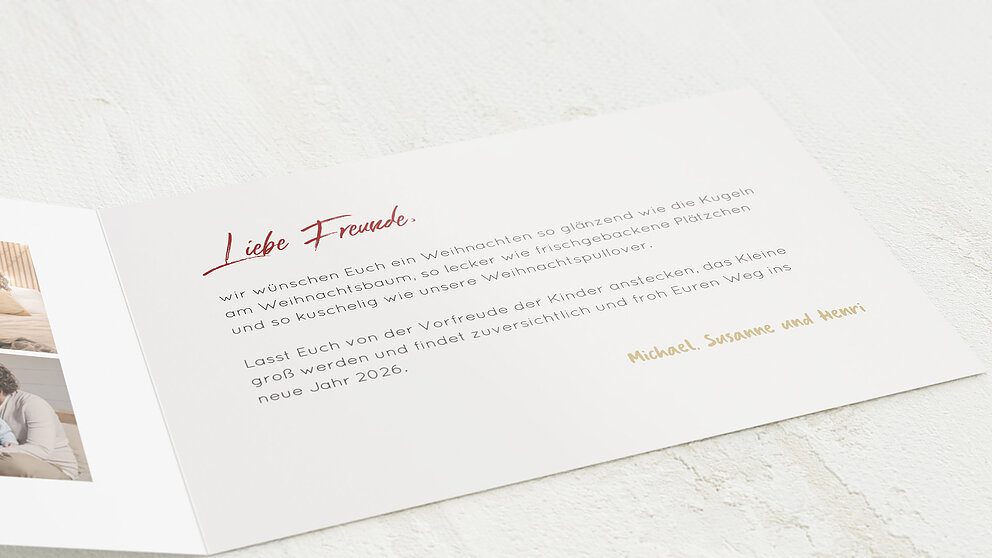 Liebe Freunde,
wir wünschen Euch ein Weihnachten so glänzend wie die Kugeln
am Weihnachtsbaum, so lecker wie frischgebackene Plätzchen
und so kuschelig wie unsere Weihnachtspullover.
Lasst Euch von der Vorfreude der Kinder anstecken, das Kleine
groß werden und findet zuversichtlich und froh Euren Weg ins
neue Jahr 2026.
Michael, Susanne und Henri